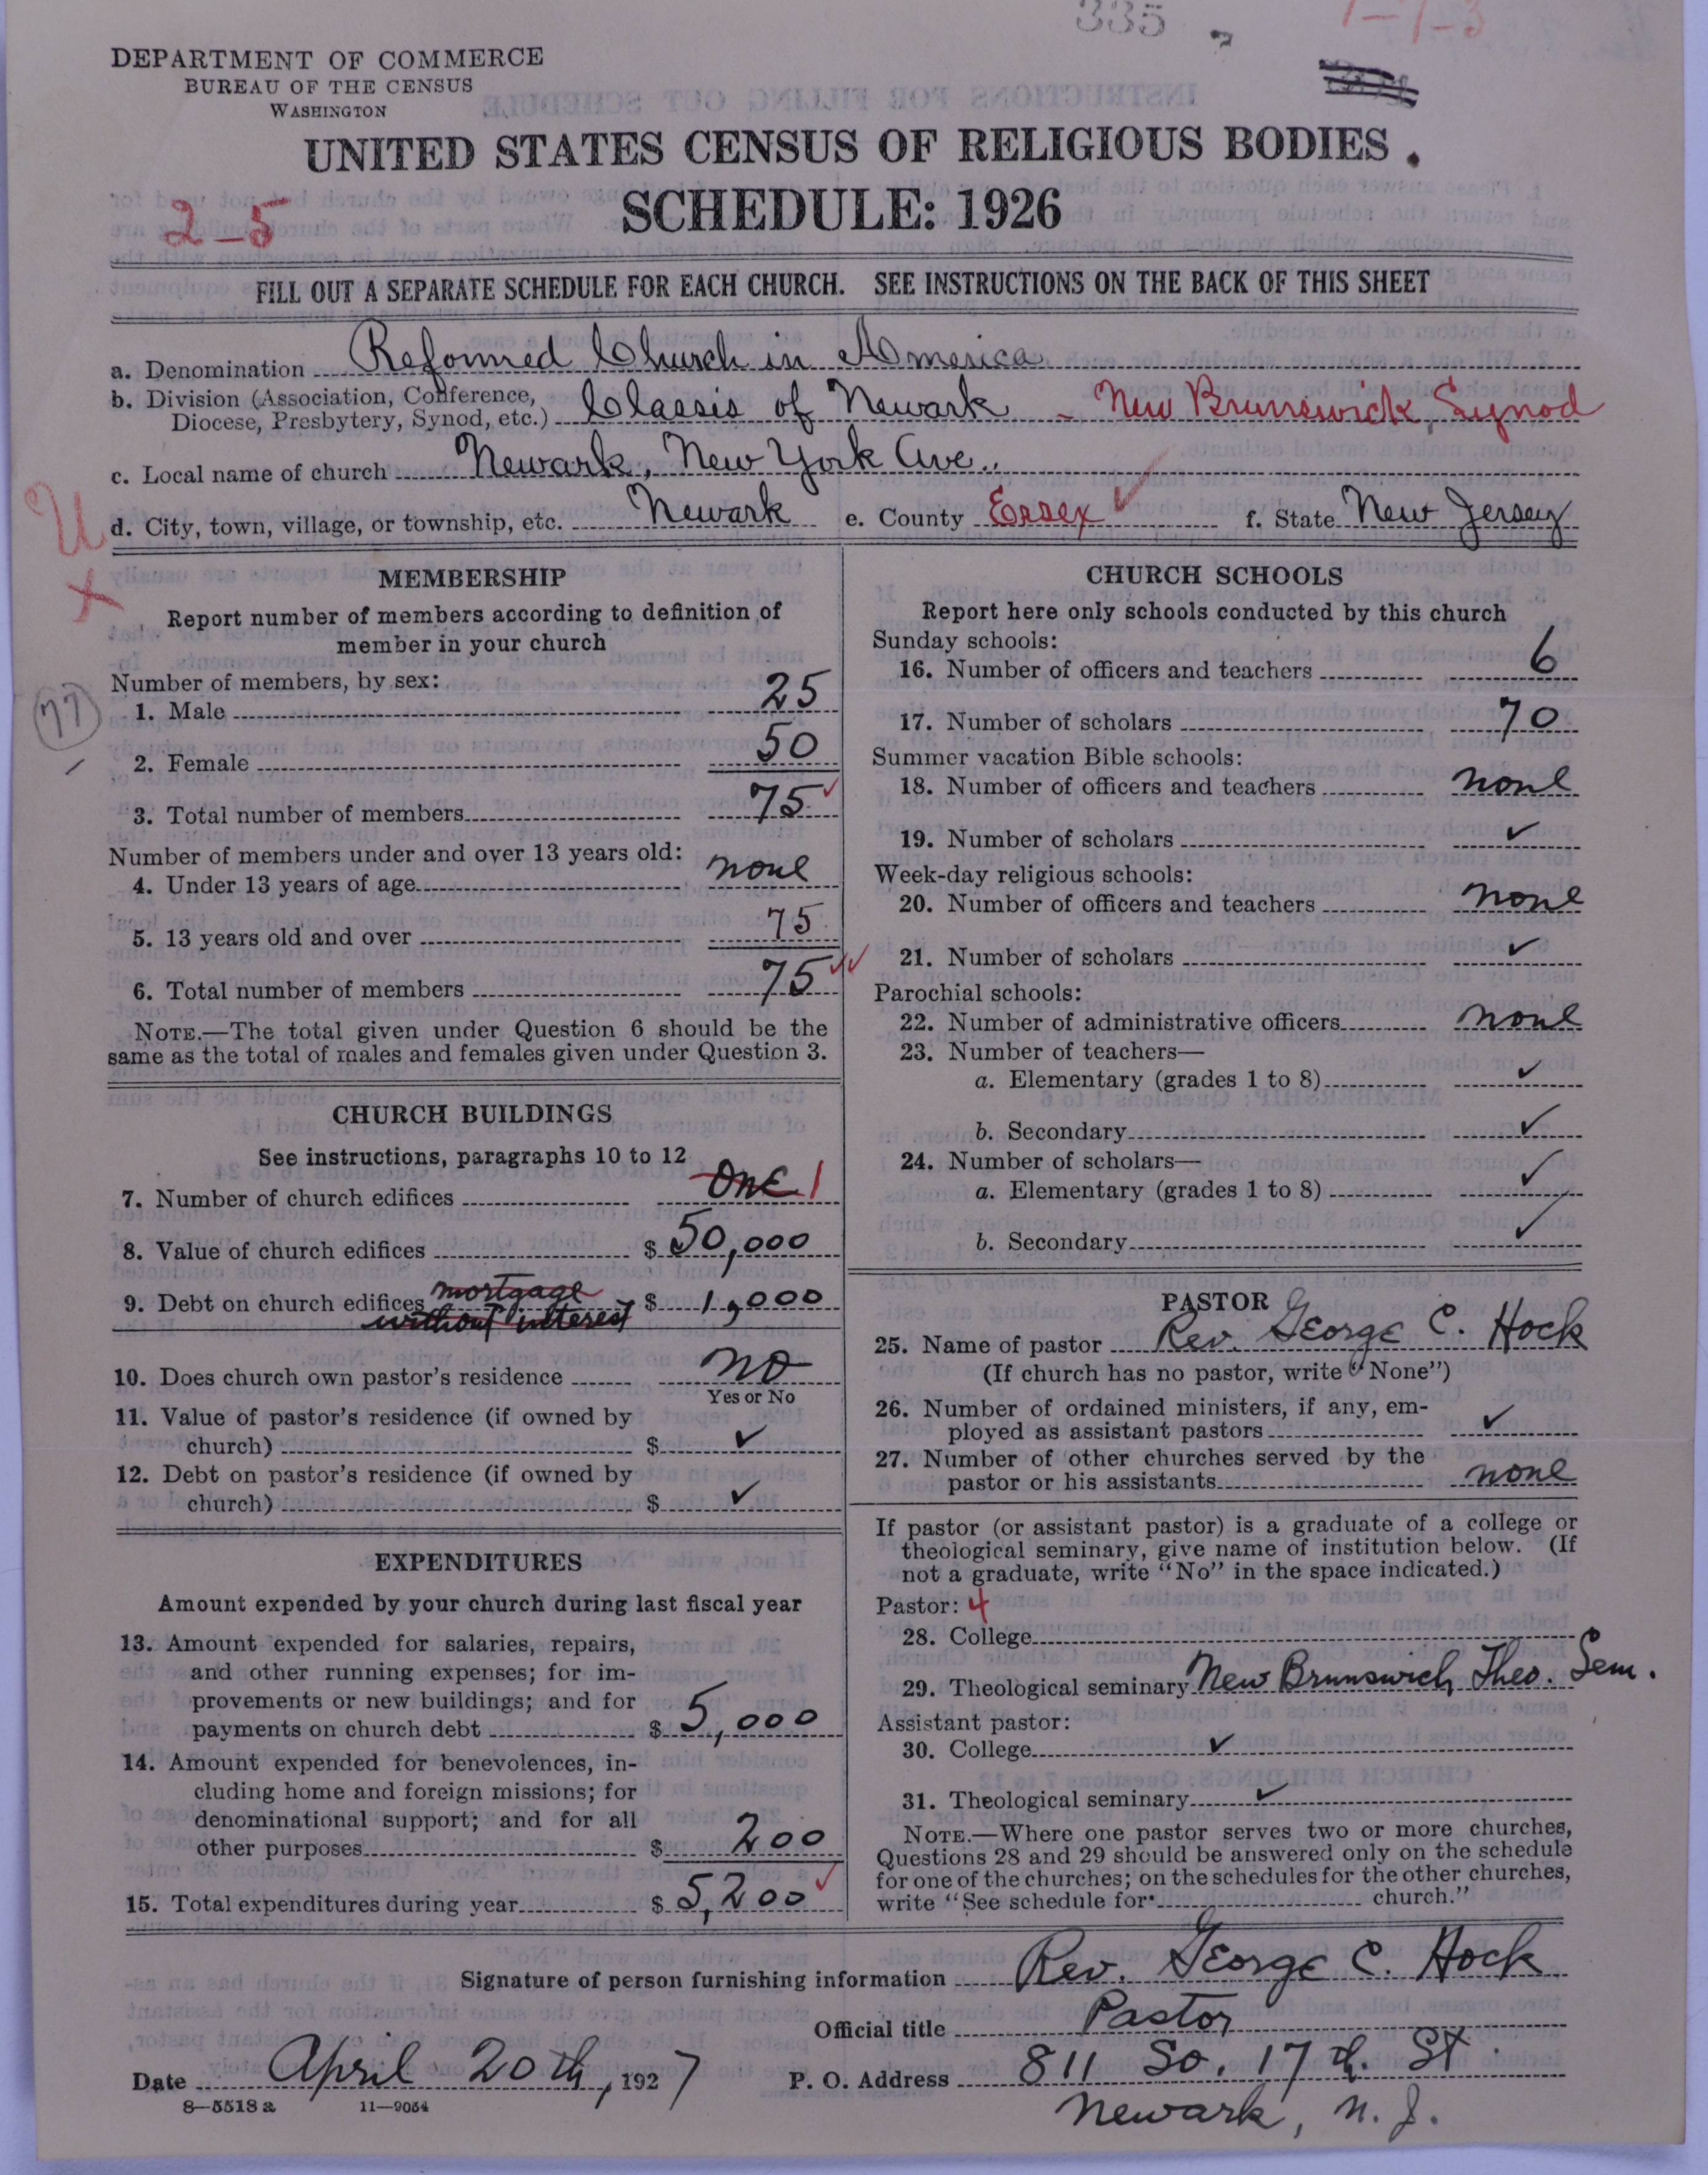 335
1-7-3
DEPARTMENT OF COMMERCE
BUREAU OF THE CENSUS
WASHINGTON
UNITED STATES CENSUS OF RELIGIOUS BODIES
SCHEDULE: 1926
2-5
FILL OUT A SEPARATE SCHEDULE FOR EACH CHURCH. SEE INSTRUCTIONS ON THE BACK OF THIS SHEET
a. Denomination Reformed Church in America
b. Division (Association, Conference,
Diocese, Presbytery, Synod, etc.) Classis of Newark - New Brunswick, Synod
c. Local name of church Newark, New York Ave.
U
d. City, town, village, or township, etc. Newark e. County Essex ✓ f. State New Jersey
X
MEMBERSHIP
Report number of members according to definition of
member in your church
Number of members, by sex:
77
1. Male 25
2. Female 50
3. Total number of members 75 ✓
Number of members under and over 13 years old:
4. Under 13 years of age none
5. 13 years old and over 75
6. Total number of members 75 ✓✓
NOTE.—The total given under Question 6 should be the
same as the total of males and females given under Question 3.
CHURCH BUILDINGS
See instructions, paragraphs 10 to 12
7. Number of church edifices One 1
8. Value of church edifices $ 50,000
9. Debt on church edifices mortgage $ 1,000
without interest
10. Does church own pastor's residence no
Yes or No
11. Value of pastor's residence (if owned by
church) $ ✓
12. Debt on pastor's residence (if owned by
church) $ ✓
EXPENDITURES
Amount expended by your church during last fiscal year
13. Amount expended for salaries, repairs,
and other running expenses; for im-
provements or new buildings; and for
payments on church debt $ 5,000
14. Amount expended for benevolences, in-
cluding home and foreign missions; for
denominational support; and for all
other purposes $ 200
15. Total expenditures during year $ 5,200 ✓
CHURCH SCHOOLS
Report here only schools conducted by this church
Sunday schools:
16. Number of officers and teachers 6
17. Number of scholars 70
Summer vacation Bible schools:
18. Number of officers and teachers none
19. Number of scholars ✓
Week-day religious schools:
20. Number of officers and teachers none
21. Number of scholars ✓
Parochial schools:
22. Number of administrative officers none
23. Number of teachers—
a. Elementary (grades 1 to 8) ✓
b. Secondary ✓
24. Number of scholars—
a. Elementary (grades 1 to 8) ✓
b. Secondary ✓
PASTOR
25. Name of pastor Rev. George C. Hock
(If church has no pastor, write "None")
26. Number of ordained ministers, if any, em-
ployed as assistant pastors ✓
27. Number of other churches served by the
pastor or his assistants none
If pastor (or assistant pastor) is a graduate of a college or
theological seminary, give name of institution below. (If
not a graduate, write "No" in the space indicated.)
Pastor: 4
28. College
29. Theological seminary New Brunswick Theo. Sem.
Assistant pastor:
30. College ✓
31. Theological seminary ✓
NOTE.—Where one pastor serves two or more churches,
Questions 28 and 29 should be answered only on the schedule
for one of the churches; on the schedules for the other churches,
write "See schedule for church."
Signature of person furnishing information Rev. George C. Hock
Official title Pastor
Date April 20th, 1927 P. O. Address 811 So. 17th. St.
8—5518a 11—9054
Newark, N. J.